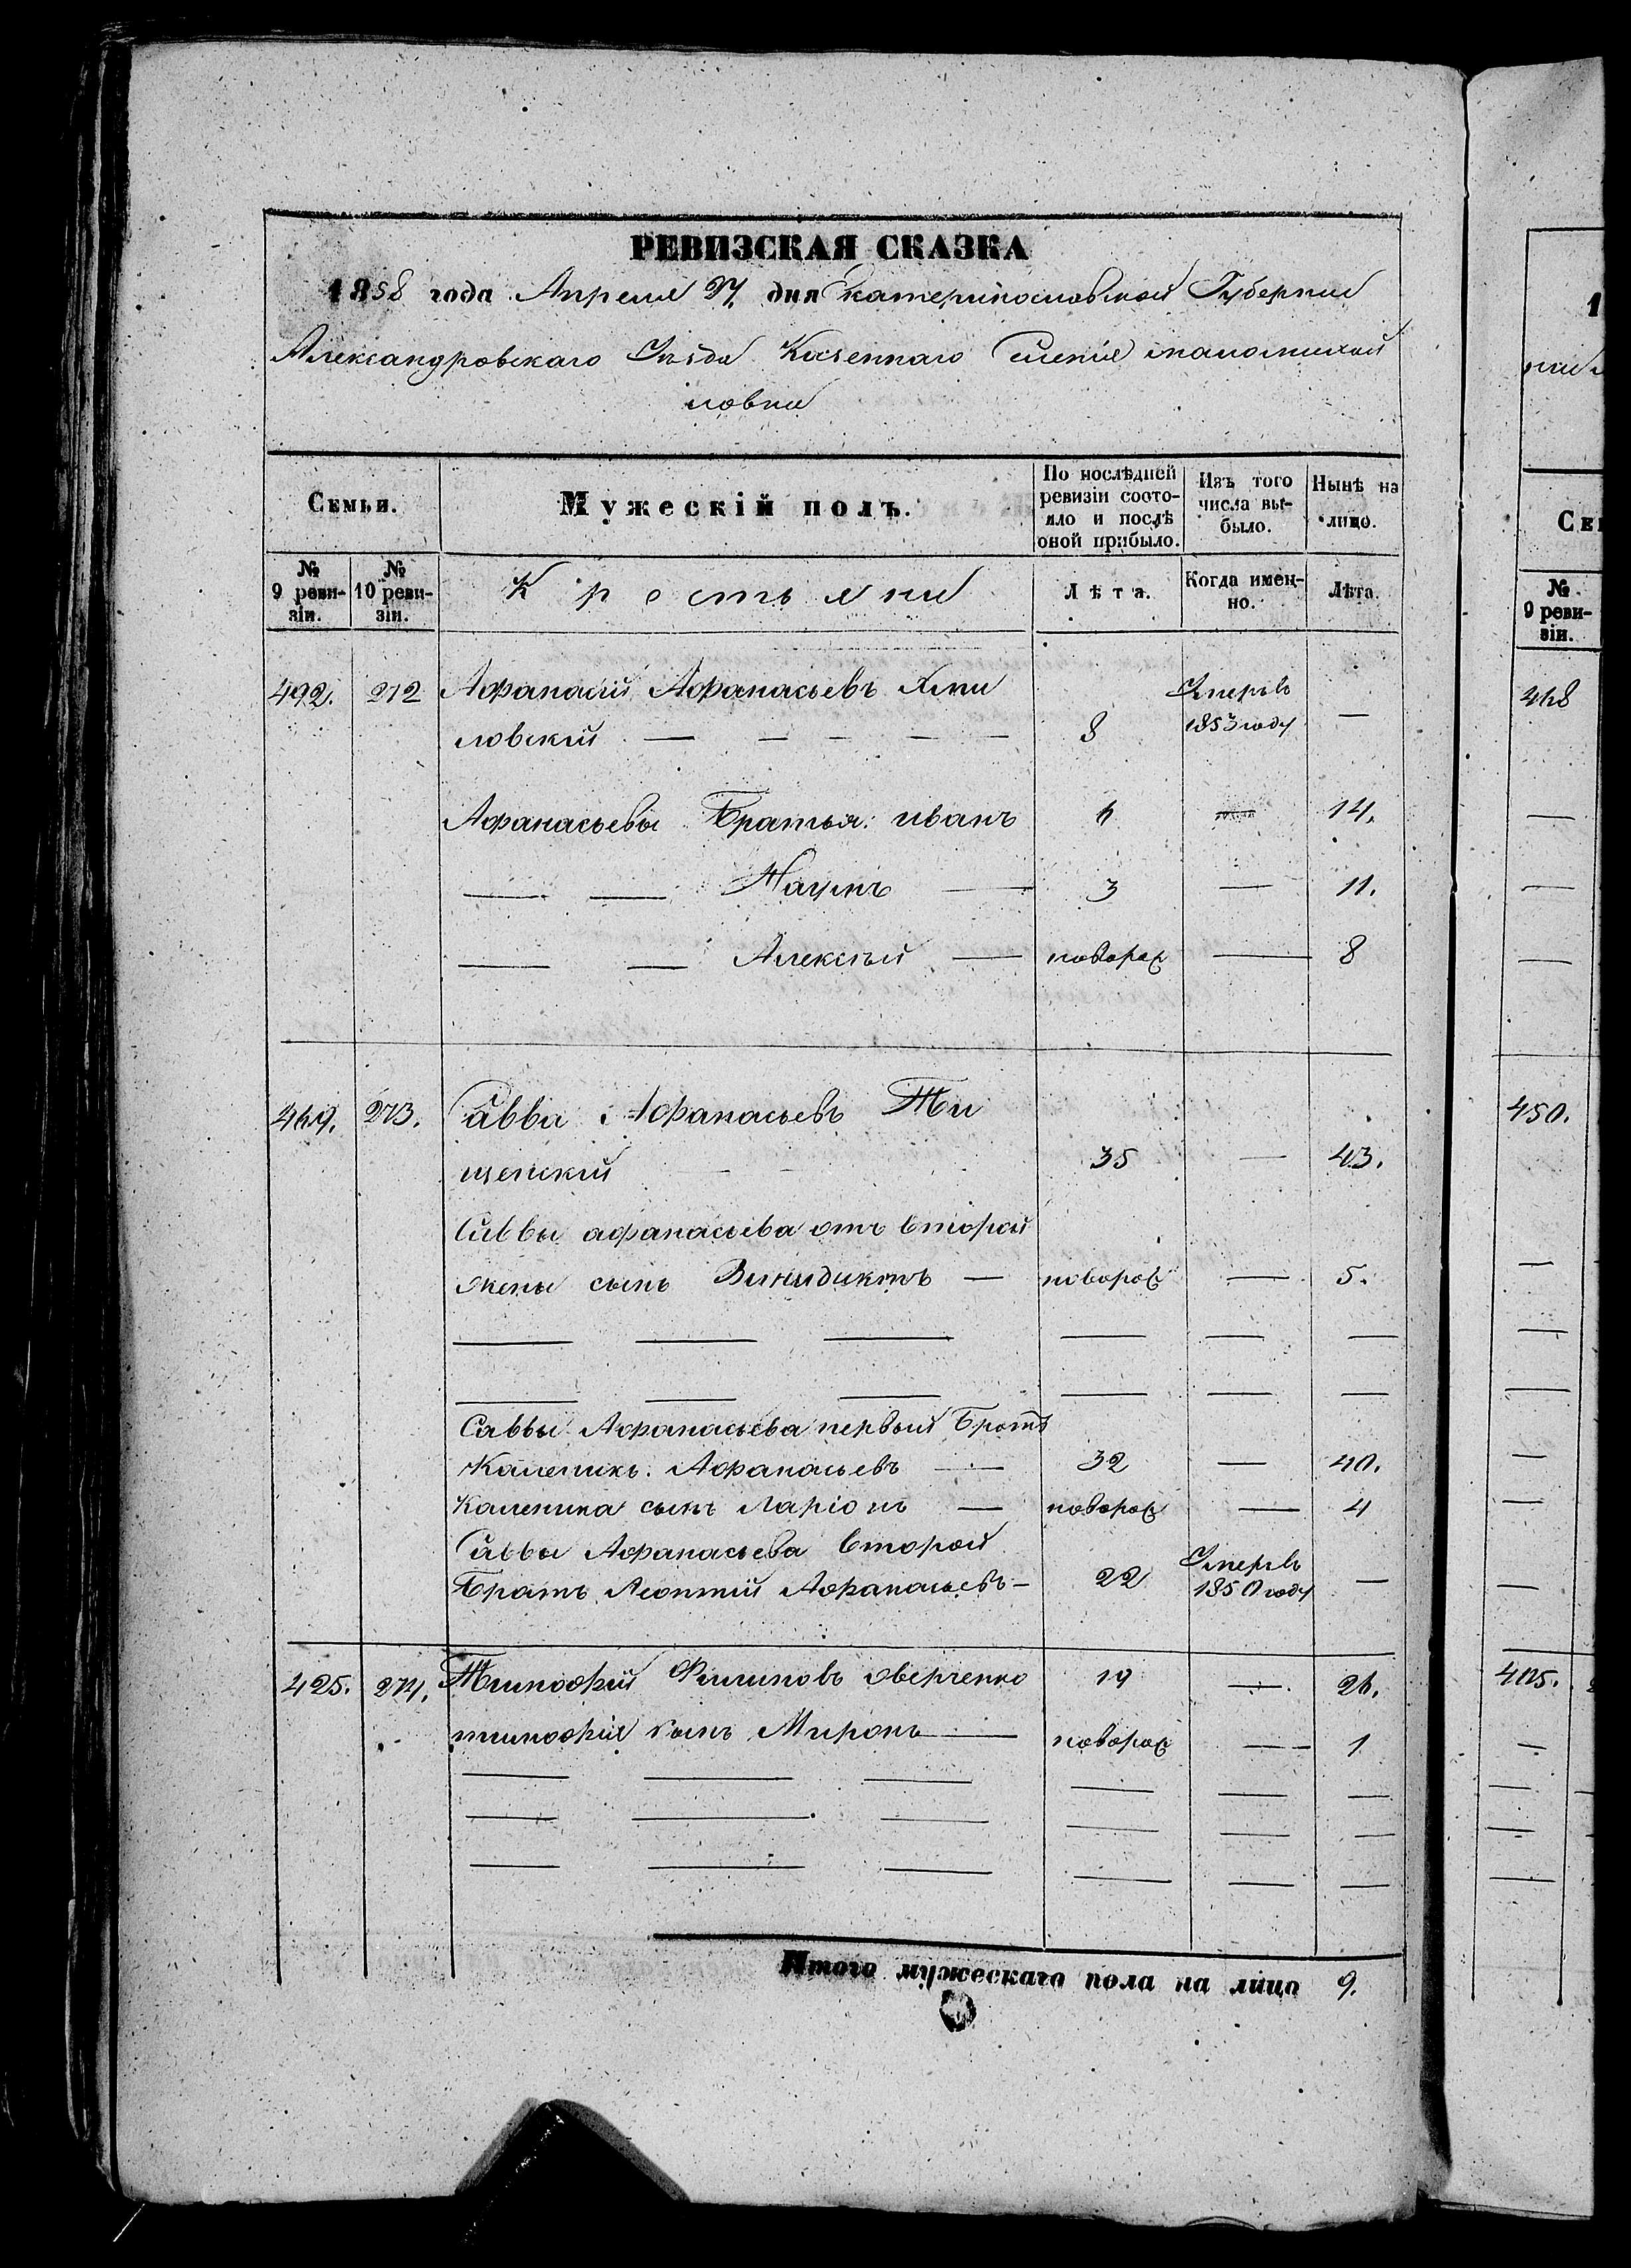 РЕВИЗСКАЯ СКАЗКА
1858 года Апреля 27 дня Екатеринославской Губернии
Александровскаго Уѣзда Казеннаго Селенія маломихай
ловки
Семьи.
Мужескій полъ.
По послѣдней ревизіи состояло и послѣ оной прибыло.
Изъ того числа выбыло.
Нынѣ на лицо.
№ 9 ревизіи.
№ 10 ревизіи.
Крестьяни
Лѣта.
Когда именно.
Лѣта.
492. 272 Афанасій Афанасьевъ Хми
ловский — — — — — 8 Умеръ 1853 году —
Афанасьевы Братья: иванъ 6 — 14.
— — Наумъ — 3 — 11.
— — Алексѣй — новорож — 8
469. 273. Савва Афанасьевъ Ти
щенский 35 — 43.
Саввы афанасьева отъ второй
жены сынъ Винидиктъ — новорож — 5.
— — — — — —
— — — — — —
Саввы Афанасьева первый Братъ
Каленикъ. Афанасьевъ — 32 — 40.
Каленика сынъ Ларіонъ — новорож — 4
Саввы Афанасьева второй
Братъ Леонтий Афанасьевъ — 22 Умеръ 1850 году —
425. 274. Тимофѣй Филиповъ Аверченко 19 — 26.
тимофѣя сынъ Миронъ — новорож — 1
— — — — — —
— — — — — —
— — — — — —
Итого мужескаго пола на лицо 9.
1
Се
№ 9 ревизіи.
468
—
—
—
450.
—
—
—
—
—
—
405.
—
—
—
—